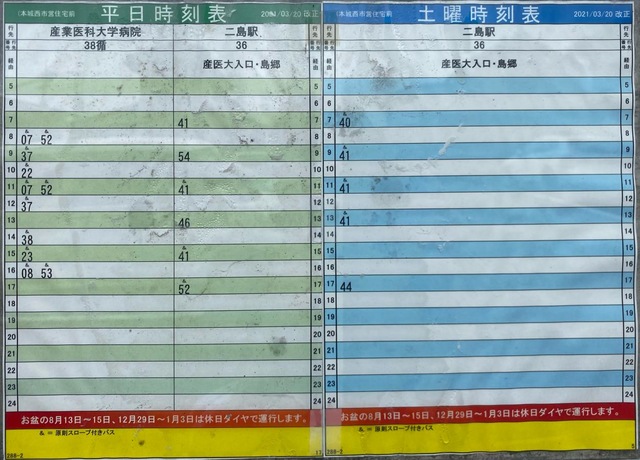 本城西市営住宅前 平日時刻表 2021/03/20 改正
行先 産業医科大学病院 二島駅 行先
番号 38循 36 番号
経由 産医大入口・島郷 経由
5 5
6 6
7 41 7
8 & 07 & 52 8
9 & 37 54 9
10 & 22 10
11 & 07 & 52 & 41 11
12 & 37 12
13 46 13
14 & 38 14
15 & 23 & 41 15
16 & 08 & 53 16
17 & 52 17
18 18
19 19
20 20
21 21
22 22
23 23
24 24
お盆の8月13日～15日、12月29日～1月3日は休日ダイヤで運行します。
&. = 原則スロープ付きバス
288-2 13
本城西市営住宅前 土曜時刻表 2021/03/20 改正
行先 二島駅 行先
番号 36 番号
経由 産医大入口・島郷 経由
5 5
6 6
7 & 40 7
8 8
9 & 41 9
10 10
11 & 41 11
12 12
13 & 41 13
14 14
15 15
16 16
17 44 17
18 18
19 19
20 20
21 21
22 22
23 23
24 24
お盆の8月13日～15日、12月29日～1月3日は休日ダイヤで運行します。
&. = 原則スロープ付きバス
288-2 5